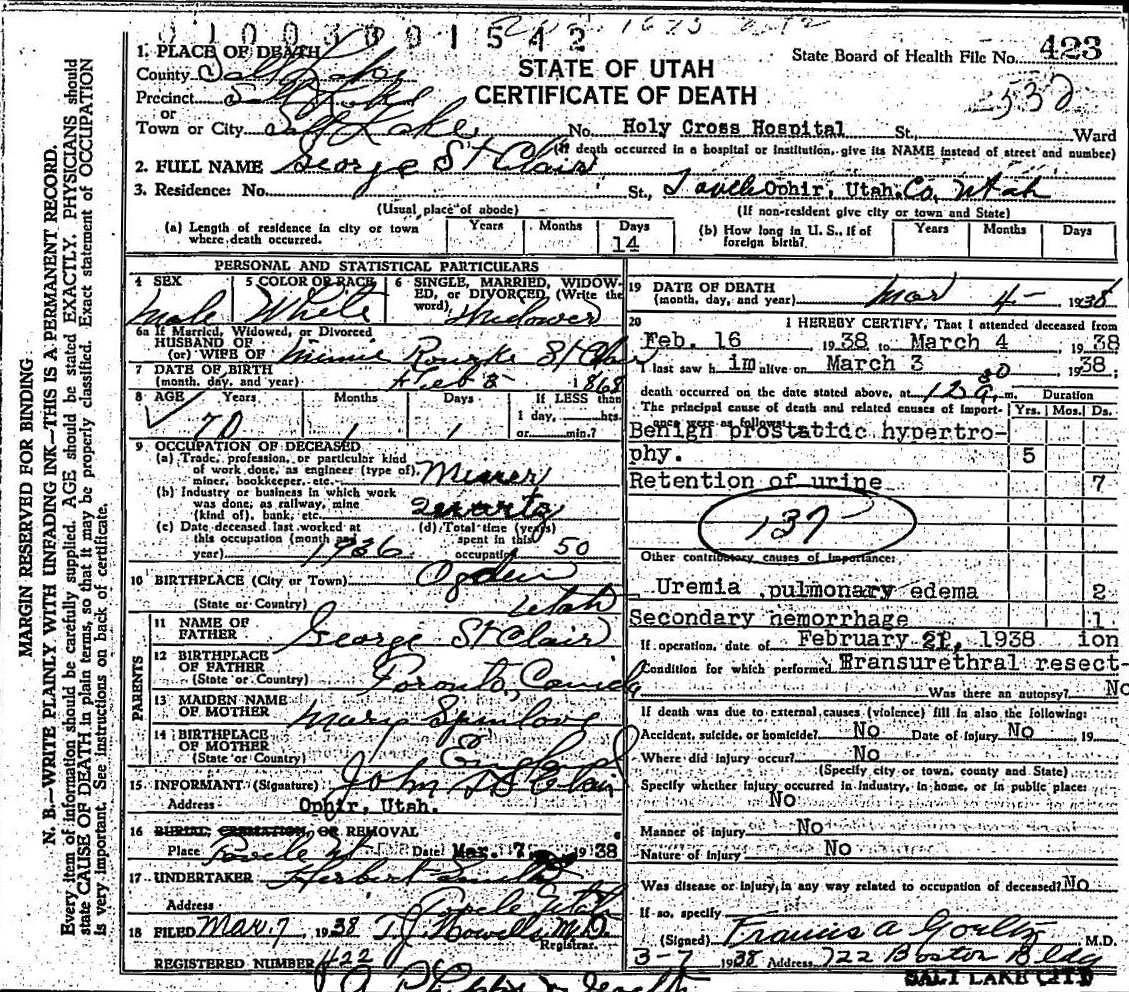 0100301542
1. PLACE OF DEATH
County Salt Lake
State Board of Health File No. 423
STATE OF UTAH
CERTIFICATE OF DEATH
Precinct Salt Lake
or
Town or City Salt Lake No. Holy Cross Hospital St., Ward
(If death occurred in a hospital or institution, give its NAME instead of street and number)
2. FULL NAME George St Clair
3. Residence: No. St., Tooele Ophir, Utah. Co, Utah
(Usual place of abode) (If non-resident give city or town and State)
(a) Length of residence in city or town where death occurred. Years Months Days 14
(b) How long in U. S., if of foreign birth? Years Months Days
MARGIN RESERVED FOR BINDING
N. B.—WRITE PLAINLY WITH UNFADING INK—THIS IS A PERMANENT RECORD.
Every item of information should be carefully supplied. AGE should be stated EXACTLY. PHYSICIANS should
state CAUSE OF DEATH in plain terms, so that it may be properly classified. Exact statement of OCCUPATION
is very important. See instructions on back of certificate.
PERSONAL AND STATISTICAL PARTICULARS
4 SEX Male
5 COLOR OR RACE White
6 SINGLE, MARRIED, WIDOWED, or DIVORCED, (Write the word) Widower
6a If Married, Widowed, or Divorced
HUSBAND OF
(or) WIFE OF Minnie Rourke St Clair
7 DATE OF BIRTH
(month, day, and year) Feb 3 1868
8 AGE Years 70 Months 1 Days 1
If LESS than
1 day, hrs.
or min.?
9 OCCUPATION OF DECEASED
(a) Trade, profession, or particular kind
of work done, as engineer (type of),
miner, bookkeeper, etc. Miner
(b) Industry or business in which work
was done, as railway, mine
(kind of), bank, etc. Quartz
(c) Date deceased last worked at
this occupation (month and
year) 1936
(d) Total time (years)
spent in this
occupation 50
10 BIRTHPLACE (City or Town) Ogden
(State or Country) Utah
PARENTS
11 NAME OF
FATHER George St Clair
12 BIRTHPLACE
OF FATHER
(State or Country) Toronto, Canada
13 MAIDEN NAME
OF MOTHER Mary
14 BIRTHPLACE
OF MOTHER
(State or Country) England
15 INFORMANT (Signature) John St Clair
Address Ophir, Utah.
16 BURIAL, CREMATION, OR REMOVAL
Place Tooele Ut Date Mar. 7 1938
17 UNDERTAKER Herbert
Address Tooele Utah
18 FILED Mar. 7 1938 T.J. Howells M.D.
Registrar.
REGISTERED NUMBER 422
19 DATE OF DEATH
(month, day, and year) Mar 4- 1938
20 I HEREBY CERTIFY, That I attended deceased from
Feb. 16 1938 to March 4 1938
I last saw him alive on March 3 1938;
death occurred on the date stated above, at 12 30 a. m.
Duration
The principal cause of death and related causes of importance were as follows:
Yrs. Mos. Ds.
Benign prostatic hypertro-
phy. 5
Retention of urine 7
137
Other contributory causes of importance:
Uremia pulmonary edema 2
Secondary hemorrhage 1
If operation, date of February 21, 1938 ion
Condition for which performed Transurethral resect-
Was there an autopsy? No
If death was due to external causes (violence) fill in also the following:
Accident, suicide, or homicide? No Date of injury No 19
Where did injury occur? No
(Specify city or town, county and State)
Specify whether injury occurred in industry, in home, or in public place:
No
Manner of injury No
Nature of injury No
Was disease or injury in any way related to occupation of deceased? No
If so, specify
(Signed) Francis A Goeltz M.D.
3-7 1938 Address 722 Boston Bldg
SALT LAKE CITY